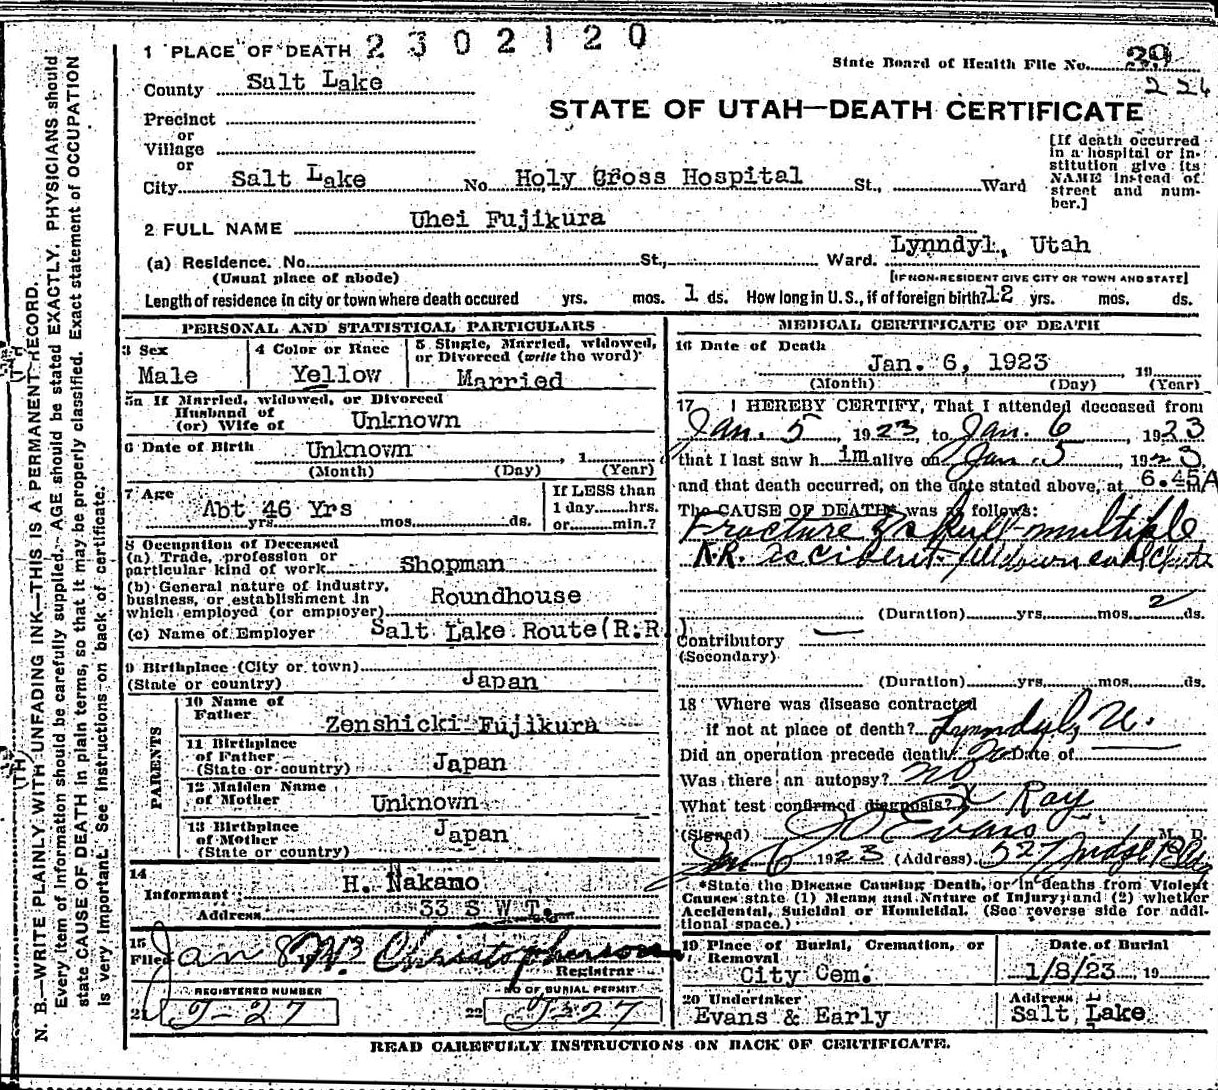 1 PLACE OF DEATH 2 3 0 2 1 2 0
State Board of Health File No. 29
County Salt Lake
STATE OF UTAH—DEATH CERTIFICATE
Precinct
or
Village
or
City Salt Lake No. Holy Cross Hospital St., Ward
[If death occurred
in a hospital or in-
stitution give its
NAME instead of
street and num-
ber.]
2 FULL NAME Uhei Fujikura
(a) Residence. No. St., Ward. Lynndyl, Utah
(Usual place of abode) [IF NON-RESIDENT GIVE CITY OR TOWN AND STATE]
Length of residence in city or town where death occured yrs. mos. 1 ds. How long in U. S., if of foreign birth? 12 yrs. mos. ds.
PERSONAL AND STATISTICAL PARTICULARS
3 Sex
Male
4 Color or Race
Yellow
5 Single, Married, widowed,
or Divorced (write the word)
Married
5a If Married, widowed, or Divorced
Husband of
(or) Wife of Unknown
6 Date of Birth Unknown , 1
(Month) (Day) (Year)
7 Age
Abt 46 Yrs
yrs. mos. ds.
If LESS than
1 day hrs.
or min.?
8 Occupation of Deceased
(a) Trade, profession or
particular kind of work Shopman
(b) General nature of industry,
business, or establishment in
which employed (or employer) Roundhouse
(c) Name of Employer Salt Lake Route (R.R.)
9 Birthplace (City or town)
(State or country) Japan
PARENTS
10 Name of
Father Zenshicki Fujikura
11 Birthplace
of Father
(State or country) Japan
12 Maiden Name
of Mother Unknown
13 Birthplace
of Mother
(State or country) Japan
14
Informant H. Nakano
Address 33 S W.T.
15
Filed Jan 8 Christopherson
Registrar
REGISTERED NUMBER
21 J-27
NO OF BURIAL PERMIT
22 J-27
MEDICAL CERTIFICATE OF DEATH
16 Date of Death
Jan. 6, 1923 19
(Month) (Day) (Year)
17 I HEREBY CERTIFY, That I attended deceased from
Jan. 5, 1923, to Jan. 6, 1923
that I last saw him alive on Jan. 5 1923
and that death occurred, on the date stated above, at 6.45A
The CAUSE OF DEATH* was as follows:
Fracture of skull - multiple
R.R. accident - fell down coal chute
(Duration) yrs. mos. 2 ds.
Contributory —
(Secondary)
(Duration) yrs. mos. ds.
18 Where was disease contracted
if not at place of death? Lynndyl, U.
Did an operation precede death? No Date of
Was there an autopsy? no
What test confirmed diagnosis? X Ray
(Signed) Evans M. D.
Jan 6 1923 (Address) 527 Judge Bldg
*State the Disease Causing Death, or in deaths from Violent
Causes state (1) Means and Nature of Injury; and (2) whether
Accidental, Suicidal or Homicidal. (See reverse side for addi-
tional space.)
19 Place of Burial, Cremation, or
Removal
City Cem.
Date of Burial
1/8/23 19
20 Undertaker
Evans & Early
Address
Salt Lake
READ CAREFULLY INSTRUCTIONS ON BACK OF CERTIFICATE.
N. B.—WRITE PLAINLY WITH UNFADING INK—THIS IS A PERMANENT RECORD.
Every item of information should be carefully supplied. AGE should be stated EXACTLY. PHYSICIANS should
state CAUSE OF DEATH in plain terms, so that it may be properly classified. Exact statement of OCCUPATION
is very important. See instructions on back of certificate.